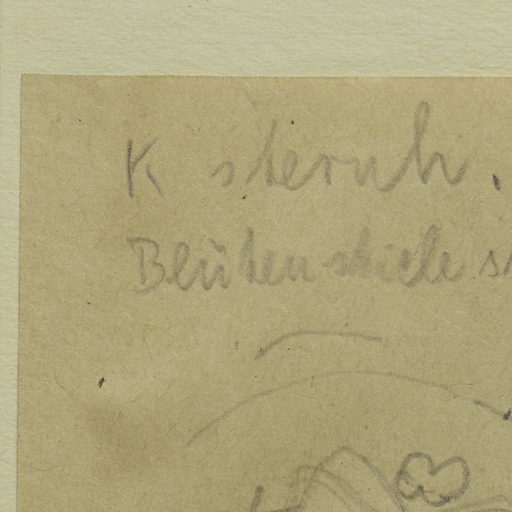 K sternh.
Blütenstiele